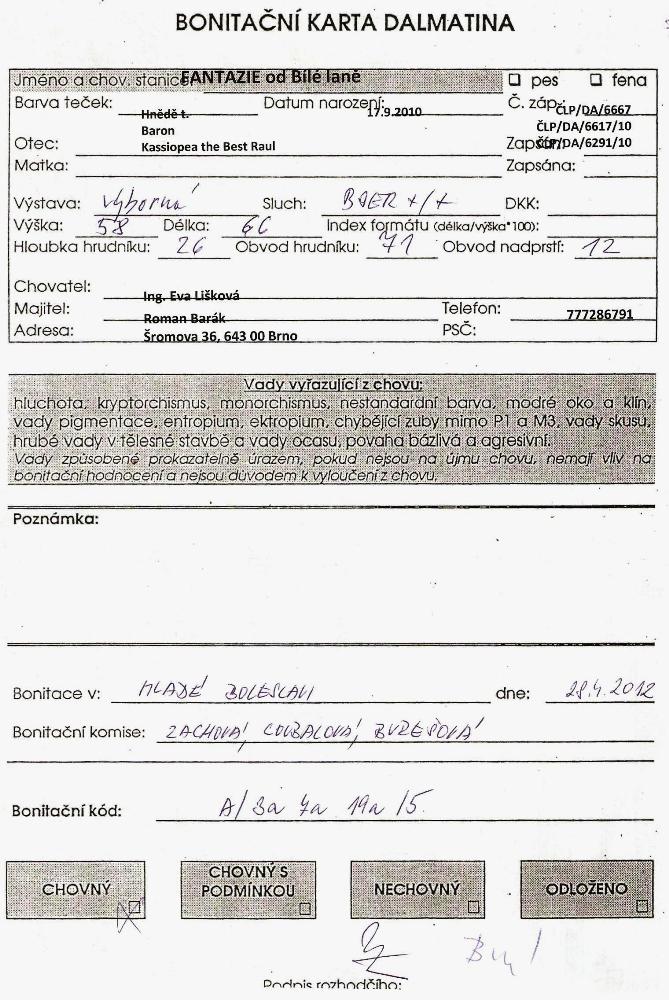 BONITAČNÍ KARTA DALMATINA
Jméno a chov. stanice: FANTAZIE od Bílé laně ☐ pes ☐ fena
Barva teček: Hnědě t. Datum narození: 17.9.2010 Č. záp.: ČLP/DA/6667
Baron ČLP/DA/6617/10
Otec: Kassiopea the Best Raul Zapsán: ČLP/DA/6291/10
Matka: Zapsána:
Výstava: Výborná Sluch: BAER +/+ DKK:
Výška: 58 Délka: 66 Index formátu (délka/výška*100):
Hloubka hrudníku: 26 Obvod hrudníku: 71 Obvod nadprstí: 12
Chovatel: Ing. Eva Lišková
Majitel: Roman Barák Telefon: 777286791
Adresa: Šromova 36, 643 00 Brno PSČ:
Vady vyřazující z chovu:
hluchota, kryptorchismus, monorchismus, nestandardní barva, modré oko a klín,
vady pigmentace, entropium, ektropium, chybějící zuby mimo P1 a M3, vady skusu,
hrubé vady v tělesné stavbě a vady ocasu, povaha bázlivá a agresivní.
Vady způsobené prokazatelně úrazem, pokud nejsou na újmu chovu, nemají vliv na
bonitační hodnocení a nejsou důvodem k vyloučení z chovu.
Poznámka:
Bonitace v: MLADÉ BOLESLAVI dne: 28.4.2012
Bonitační komise: ZACHOVÁ, COUBALOVÁ, BUREŠOVÁ
Bonitační kód: A/ 3a 7a 19a /5.
CHOVNÝ ☐ CHOVNÝ S PODMÍNKOU ☐ NECHOVNÝ ☐ ODLOŽENO ☐
Podpis rozhodčího: